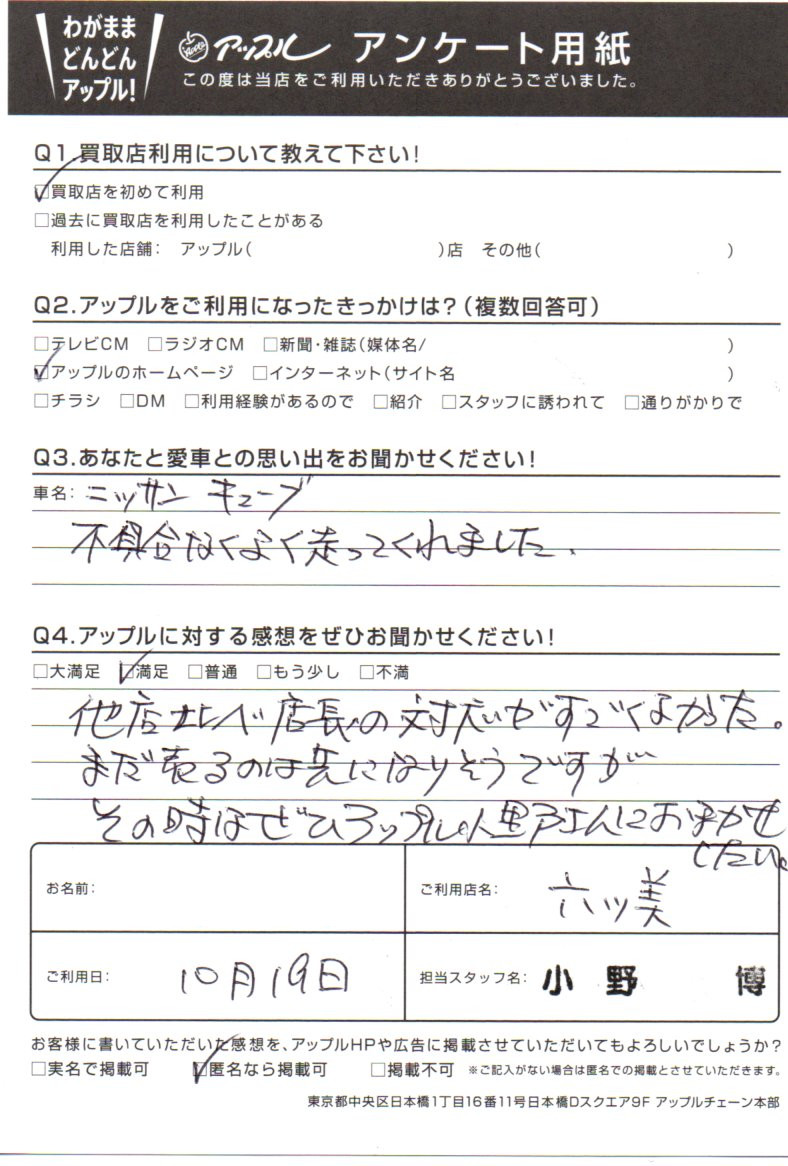 わがまま
どんどん
アップル!
アップル アンケート用紙
この度は当店をご利用いただきありがとうございました。
Q1.買取店利用について教えて下さい!
☑買取店を初めて利用
□過去に買取店を利用したことがある
利用した店舗: アップル( )店 その他( )
Q2.アップルをご利用になったきっかけは?(複数回答可)
□テレビCM □ラジオCM □新聞・雑誌(媒体名/ )
☑アップルのホームページ □インターネット(サイト名 )
□チラシ □DM □利用経験があるので □紹介 □スタッフに誘われて □通りがかりで
Q3.あなたと愛車との思い出をお聞かせください!
車名: ニッサン キューブ
不具合なくよく走ってくれました.
Q4.アップルに対する感想をぜひお聞かせください!
□大満足 ☑満足 □普通 □もう少し □不満
他店比べ店長の対応がすごくよかった。
まだ売るのは先になりそうですが
その時はぜひアップル 野さんにおまかせ
したい。
お名前:
ご利用店名: 六ッ美
ご利用日: 10月19日
担当スタッフ名: 小野 博
お客様に書いていただいた感想を、アップルHPや広告に掲載させていただいてもよろしいでしょうか?
□実名で掲載可 ☑匿名なら掲載可 □掲載不可 ※ご記入がない場合は匿名での掲載とさせていただきます。
東京都中央区日本橋1丁目16番11号日本橋Dスクエア9F アップルチェーン本部